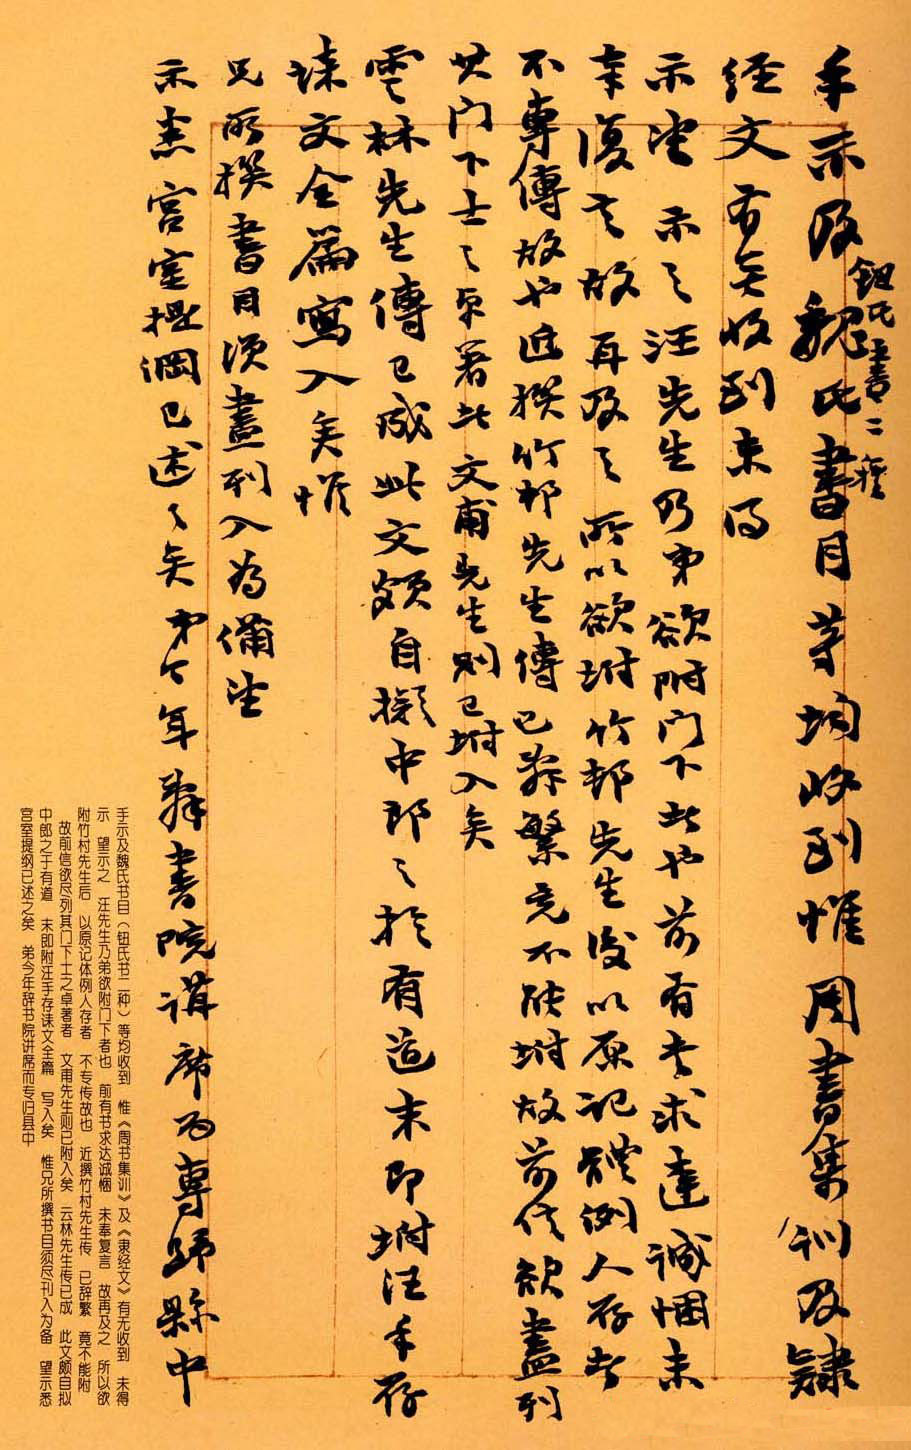 手示及魏氏書目等均收到惟周書集訓及隸
鈕氏書二種
經文有無收到未得
示望示之汪先生乃弟欲附門下者也前有書求達誠悃未
奉復言故再及之所以欲坿竹邨先生後以原記體例人存者
不專傳故也近撰竹邨先生傳已辞繁竟不能坿故前信欲盡列
其门下士之卓著者文甫先生則已坿入矣
雲林先生傳已成此文頗自擬中郎之於有道末即坿汪手存
誄文全篇寫入矣惟
兄所撰書目須盡刊入為備望
示悉宫室提綱已述之矣弟今年辞書院講席而專歸縣中
手示及魏氏书目（钮氏书二种）等均收到　惟《周书集训》及《隶经文》有无收到　未得
示　望示之　汪先生乃弟欲附门下者也　前有书求达诚悃　未奉复言　故再及之　所以欲
附竹村先生后　以原记体例人存者　不专传故也　近撰竹村先生传　已辞繁　竟不能附
故前信欲尽列其门下士之卓著者　文甫先生则已附入矣　云林先生传已成　此文颇自拟
中郎之于有道　末即附汪手存诔文全篇　写入矣　惟兄所撰书目须尽刊入为备　望示悉
宫室提纲已述之矣　弟今年辞书院讲席而专归县中